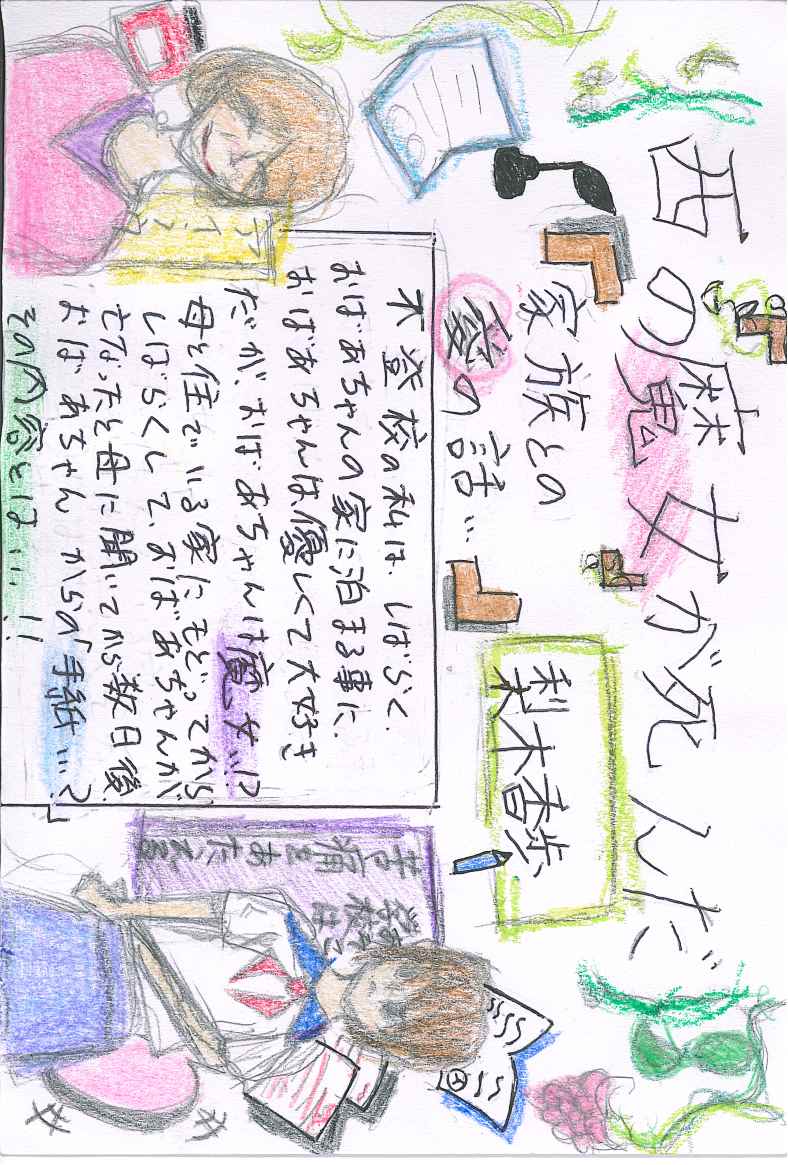 西の魔女が死んだ
家族との
愛の話…
梨木香歩
不登校の私は、しばらく、
おばあちゃんの家に泊まる事に。
おばあちゃんは優しくて大好き
だが、おばあちゃんは魔女…!?
母と住でいる家にもどってから
しばらくして、おばあちゃんが
亡なったと母に聞いてから数日後、
おばあちゃんからの「手紙…?」
その内容とは…!!
学校は
苦痛をあたえる